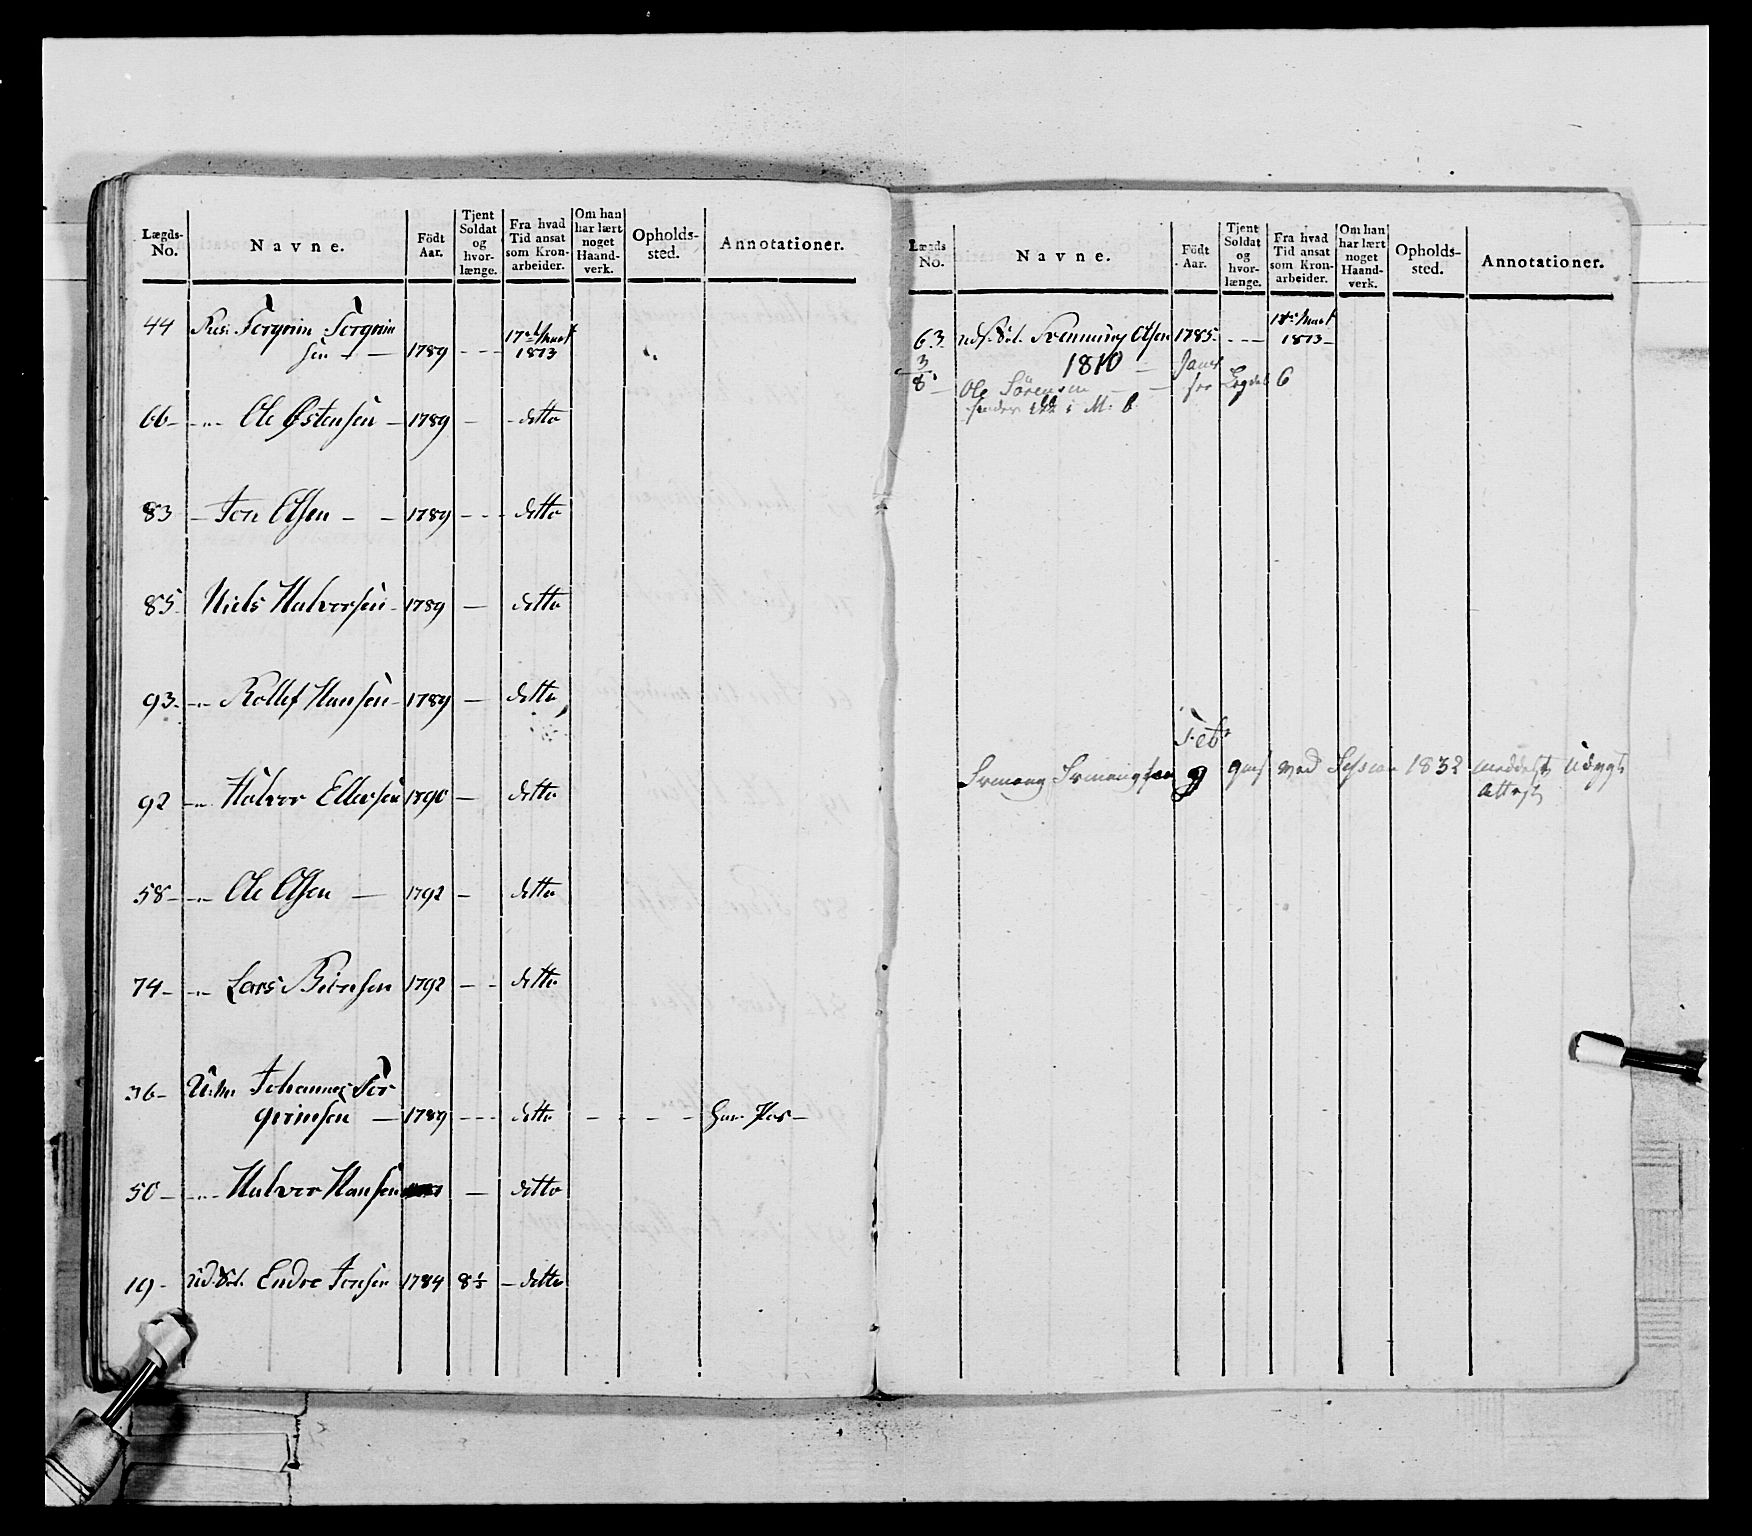 Lægds- No. Navne. Födt Aar. Tjent Soldat og hvor- længe. Fra hvad Tid ansat som Kron- arbeider. Om han har lært noget Haand- verk. Opholds- sted. Annotationer.
44 Torgrim Torgrim
sen — 1789 - - - 17de Mart 1813
66 - - " - Ole Østensen - 1789 - - detto
83 - Jon Olsen - - 1789 - - - detto
85 Niels Halvorsen - 1789 - detto
93 - " - Rollef Hansen - 1789 - detto
92 - " - Halvor Ellevsen 1790 - detto
58 - " - Ole Olsen - 1792 - detto
74 - " - Lars Biörnsen 1792 - - detto
36 - Johannes Tor
grimsen - 1789 - - - detto - - - - Pas -
50 - - " - Halvor Hansen - detto
19 - Ud. Sol. Endre Jonsen 1784 8½ - detto
Lægds No. Navne. Födt Aar. Tjent Soldat og hvor- længe. Fra hvad Tid ansat som Kron- arbeider. Om han har lært noget Haand- verk. Opholds- sted. Annotationer.
63 Ud. Sol. Olsen 1785 - - - 18de Mart 1813 -
1810 -
3/8 - Ole Sörensen - - 6
i M: 6
Feb
9 ved Session 1832 meddelt Udygt:
Attest